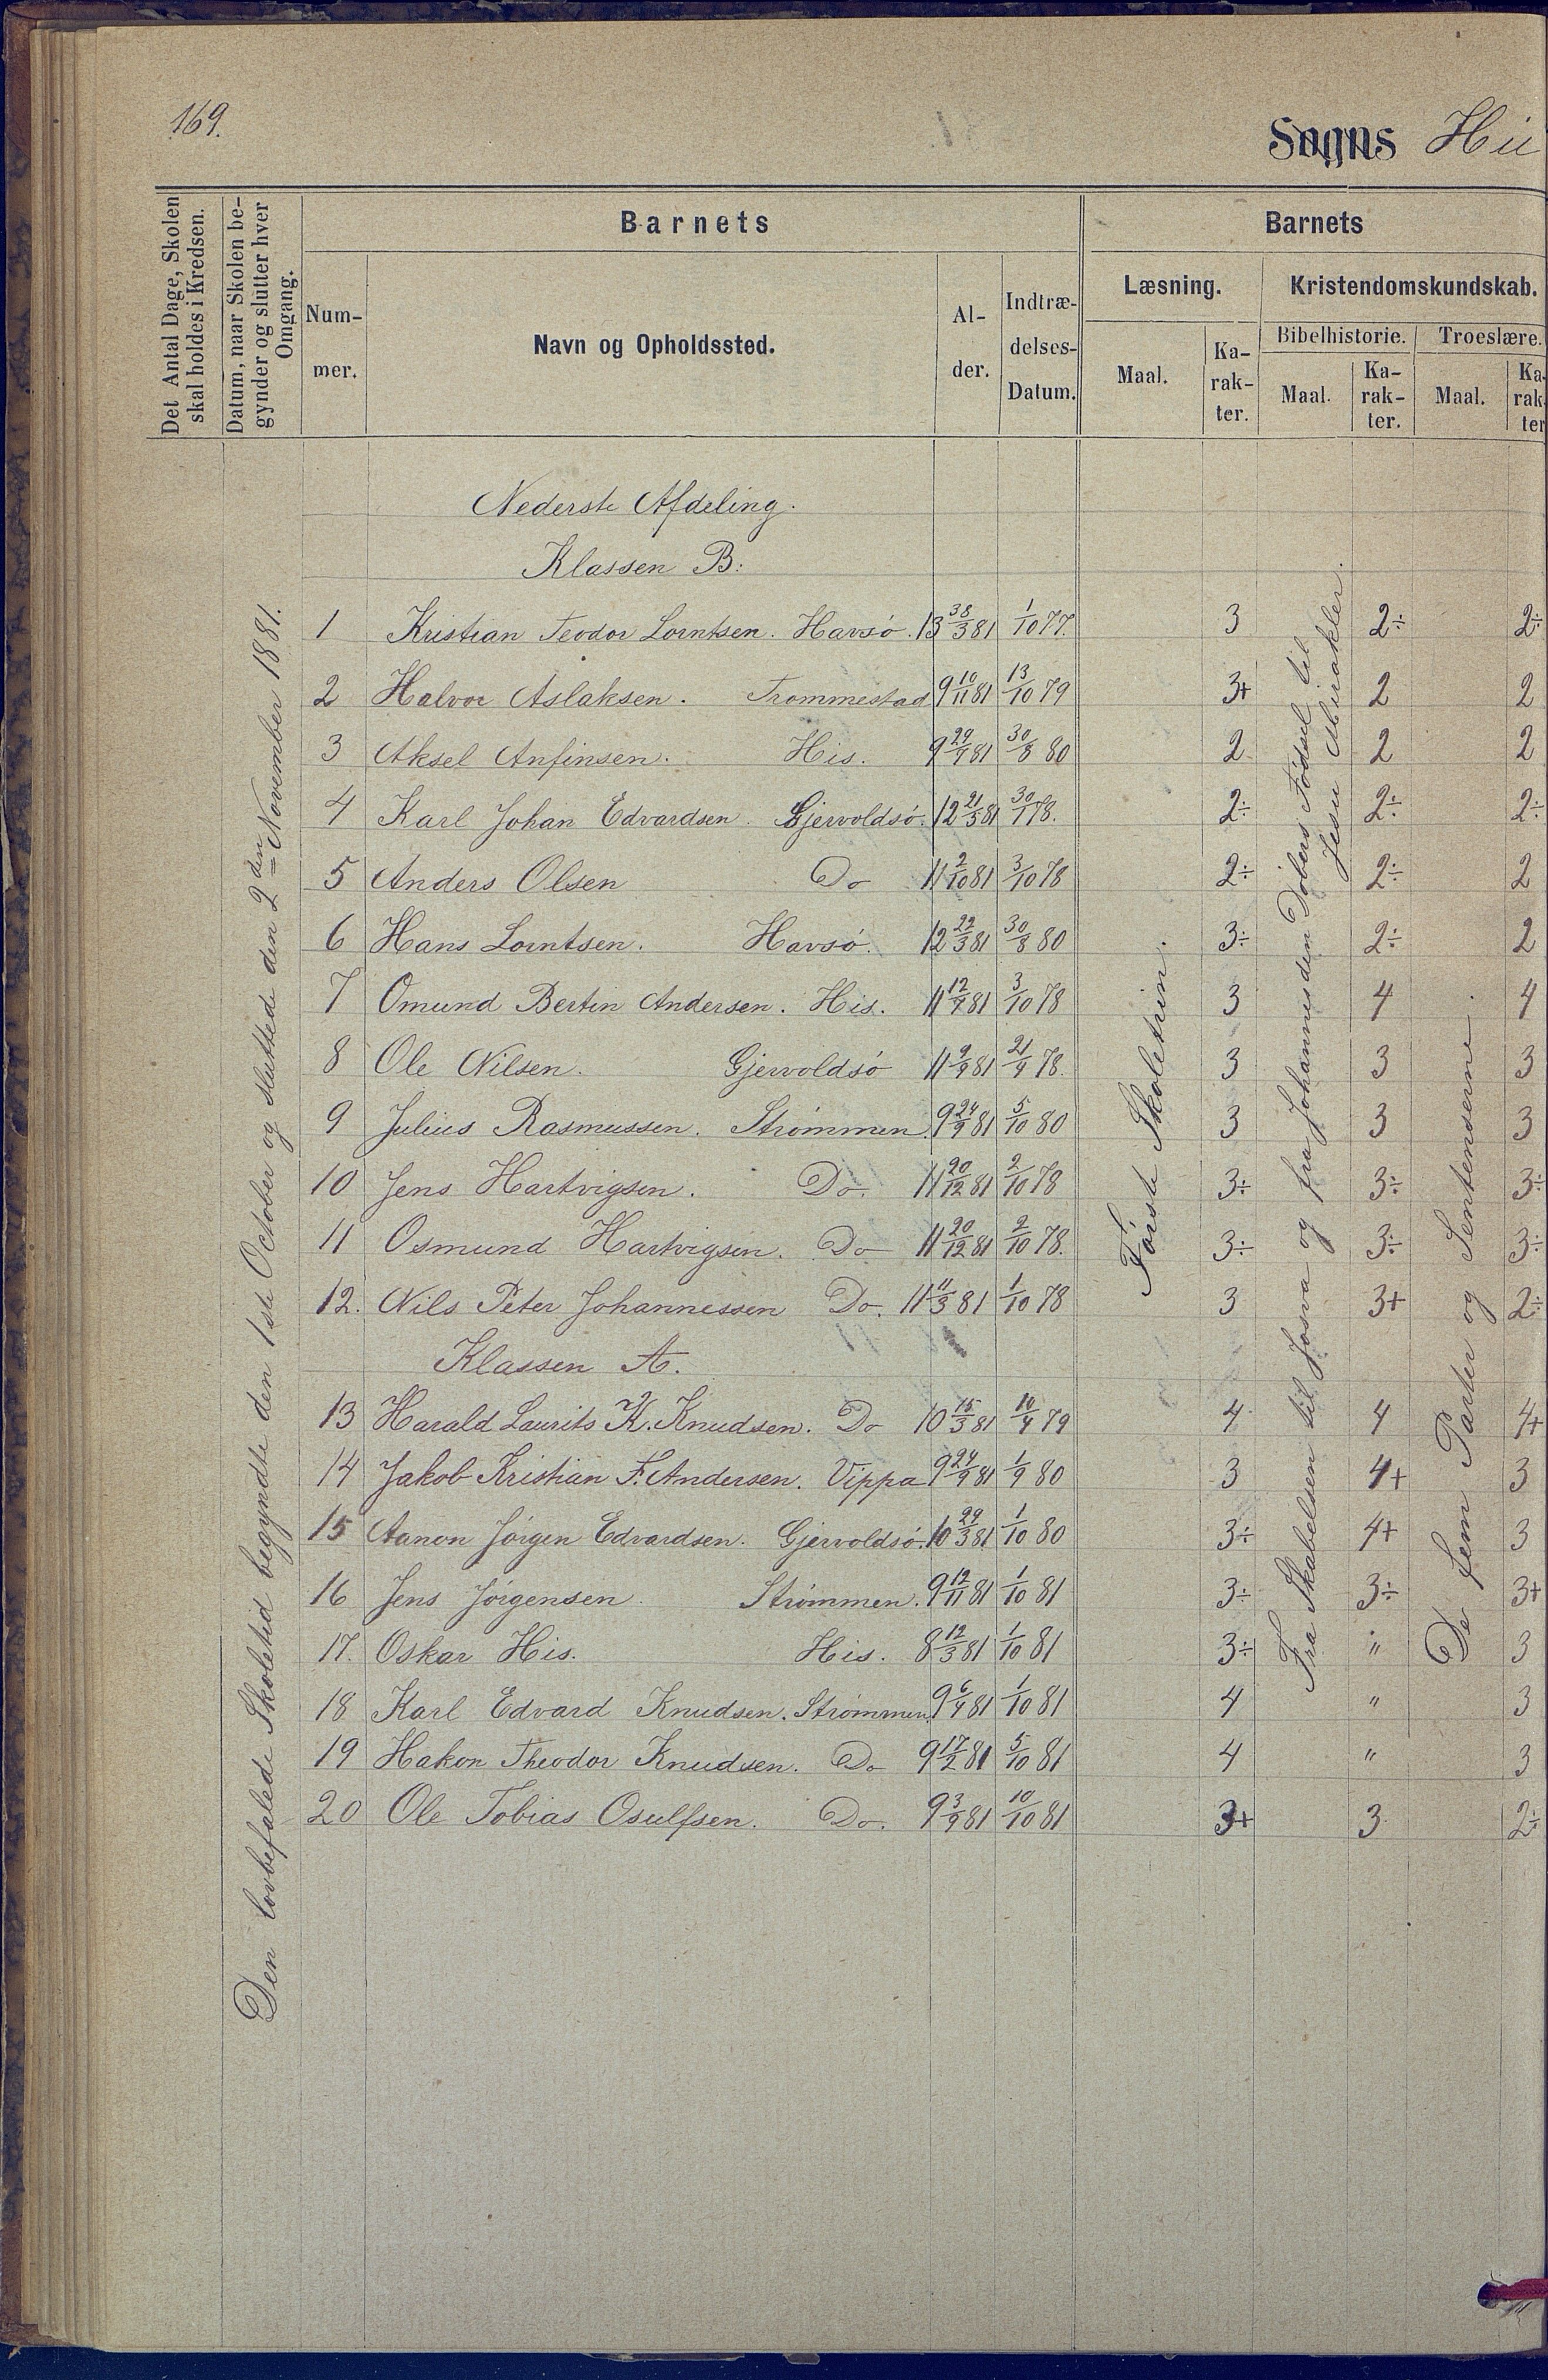 169.
Sogns Hii
Det Antal Dage, Skolen skal holdes i Kredsen.
Datum, naar Skolen begynder og slutter hver Omgang.
Barnets
Barnets
Num-
mer.
Navn og Opholdssted.
Al-
der.
Indtræ-
delses-
Datum.
Læsning.
Kristendomskundskab.
Maal.
Ka-
rak-
ter.
Bibelhistorie.
Troeslære.
Maal.
Ka-
rak-
ter.
Maal.
Ka-
rak-
ter
Den lovbefalede Skoletid begyndte den 1ste October og sluttede den 2den November 1881.
Nederste Afdeling.
Klassen B:
1 Kristian Teodor Lorntsen. Havsø. 13 38/3 81 1/10 77. 3 2÷ 2÷
2 Halvor Aslaksen. Trommestad 9 10/11 81 13/10 79 3+ 2 2
3 Aksel Anfinsen. His. 9 29/9 81 30/8 80 2 2 2
4 Karl Johan Edvardsen. Gjervoldsø. 12 21/5 81 30/1 78. 2÷ 2÷ 2÷
5 Anders Olsen Do 11 2/10 81 3/10 78 2÷ 2÷ 2
6 Hans Lorntsen. Havsø. 12 22/3 81 30/8 80 3÷ 2÷ 2
7 Omund Bertin Andersen. His. 11 12/9 81 3/10 78 3 4 4
8 Ole Nilsen. Gjervoldsø 11 9/9 81 21/9 78. 3 3 3
9 Julius Rasmussen. Strømmen. 9 24/9 81 5/10 80 3 3 3
10 Jens Hartvigsen. Do. 11 20/12 81 2/10 78 3÷ 3÷ 3÷
11 Osmund Hartvigsen. Do 11 20/12 81 2/10 78. 3÷ 3÷ 3÷
12. Nils Peter Johannessen Do. 11 11/3 81 1/10 78 3 3+ 2÷
Klassen A.
13 Harald Laurits K. Knudsen. Do 10 15/3 81 10/4 79 4 4 4+
14 Jakob Kristian F. Andersen. Vippa 9 24/9 81 1/9 80 3 4+ 3
15 Aanon Jörgen Edvardsen. Gjervoldsø. 10 29/3 81 1/10 80 3÷ 4+ 3
16 Jens Jörgensen Strømmen. 9 12/11 81 1/10 81 3÷ 3÷ 3+
17. Oskar His. His. 8 12/3 81 1/10 81 3÷ " 3
18 Karl Edvard Knudsen. Strømmen. 9 6/4 81 1/10 81 4 " 3
19 Hakon Theodor Knudsen. Do 9 17/2 81 5/10 81 4 " 3
20 Ole Tobias Osulfsen. Do. 9 3/9 81 10/10 81 3+ 3 2÷
Første Skoletrin.
Fra Skabelsen til Josva og fra Johannes den Døbers Fødsel til
Jesu Mirakler.
De fem Parter og Sentenserne.